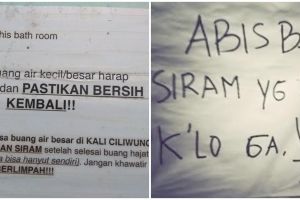 his bath room
uang air kecil/besar harap
dan PASTIKAN BERSIH
KEMBALI!!!
sa buang air besar di KALI CILIWUNG
AN SIRAM setelah selesai buang hajat
a bisa hanyut sendiri). Jangan khawatir
ERLIMPAH!!!
ABIS B
SIRAM YE
K'LO GA.!